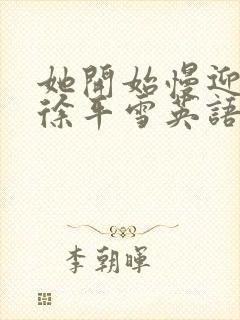 她開始慢迎
徐平雪英語
李朝暉